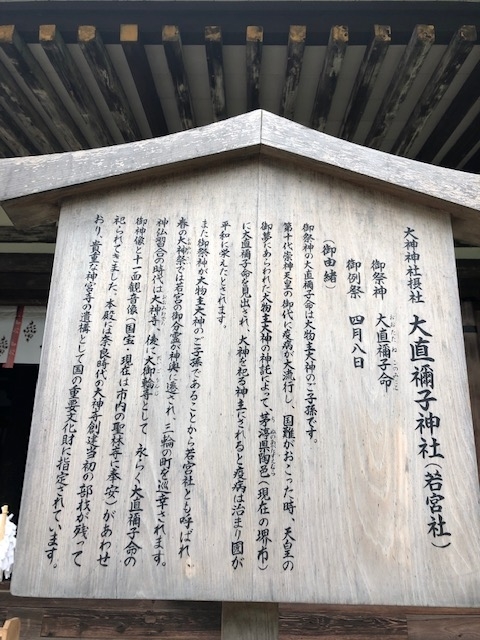 大神神社摂社　大直禰子神社（若宮社）
御祭神　大直禰子命
おおたたねこのみこと
御例祭　四月八日
（御由緒）
御祭神の大直禰子命は大物主大神のご子孫です。
第十代崇神天皇の御代に疫病が大流行し、国難がおこった時、天皇の
御夢にあらわれた大物主大神の神託によって、茅渟県陶邑（現在の堺市）
に大直禰子命を見出され、大神を祀る神主にされると疫病は治まり国が
平和に栄えたとされます。
また御祭神が大物主大神のご子孫であることから若宮社とも呼ばれ、
春の大神祭では若宮の御分霊が神輿に遷され、三輪の町を巡幸されます。
神仏習合の時代は大神寺、後に大御輪寺として、永らく大直禰子命の
御神像と十一面観音像（国宝・現在は市内の聖林寺に奉安）があわせ
祀られてきました。本殿には奈良時代の大神寺創建当初の部材が残って
おり、貴重な神宮寺の遺構として国の重要文化財に指定されています。